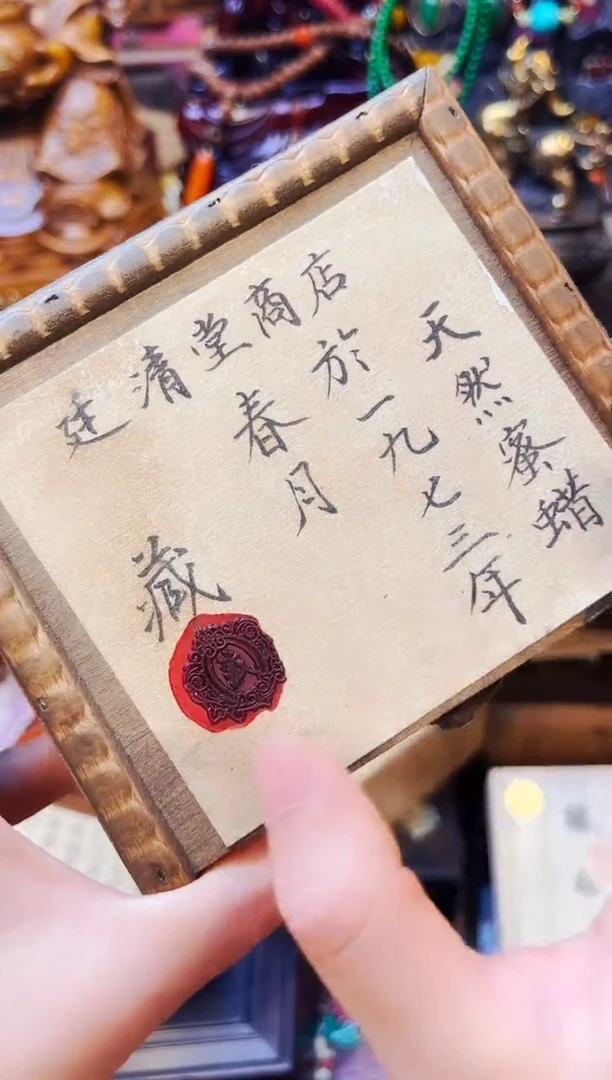 廷清堂商店
天然蜜蜡
於一九七三年
春月
藏